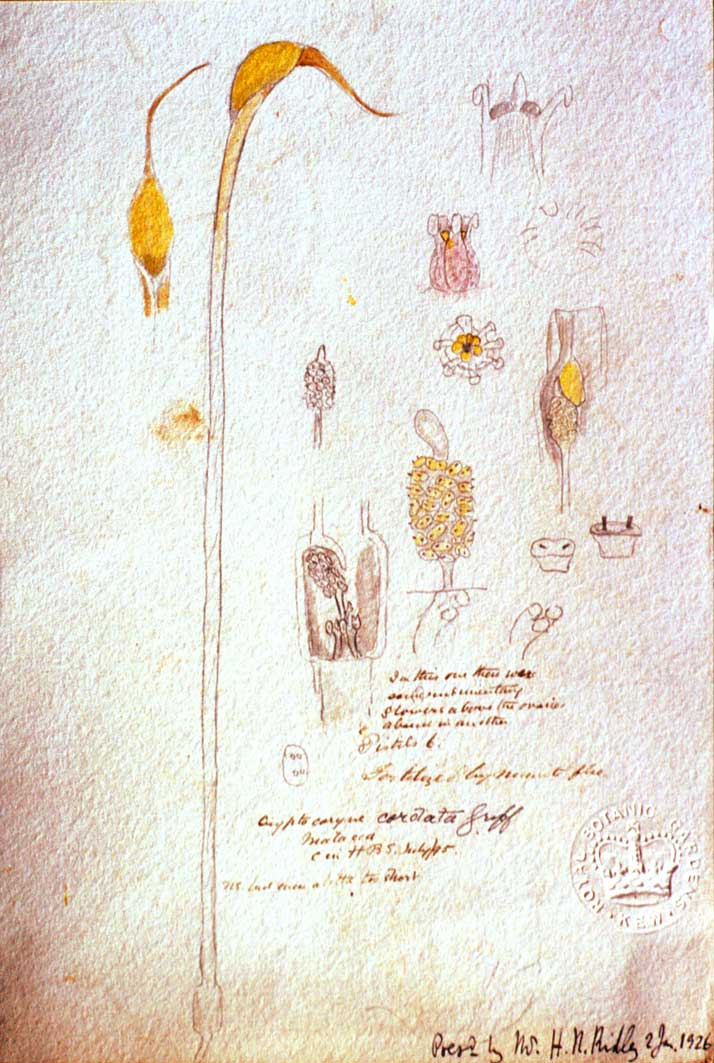 In this one there were
some rudimentary
flowers above the ovaries
absent in another
Pistils 6.
Fertilized by minute flies
Cryptocoryne cordata Griff
Malacca
C in HBS. July/95.
ROYAL BOTANIC GARDENS
KEW
Presd. by Mr. H. N. Ridley 2 Jan. 1926